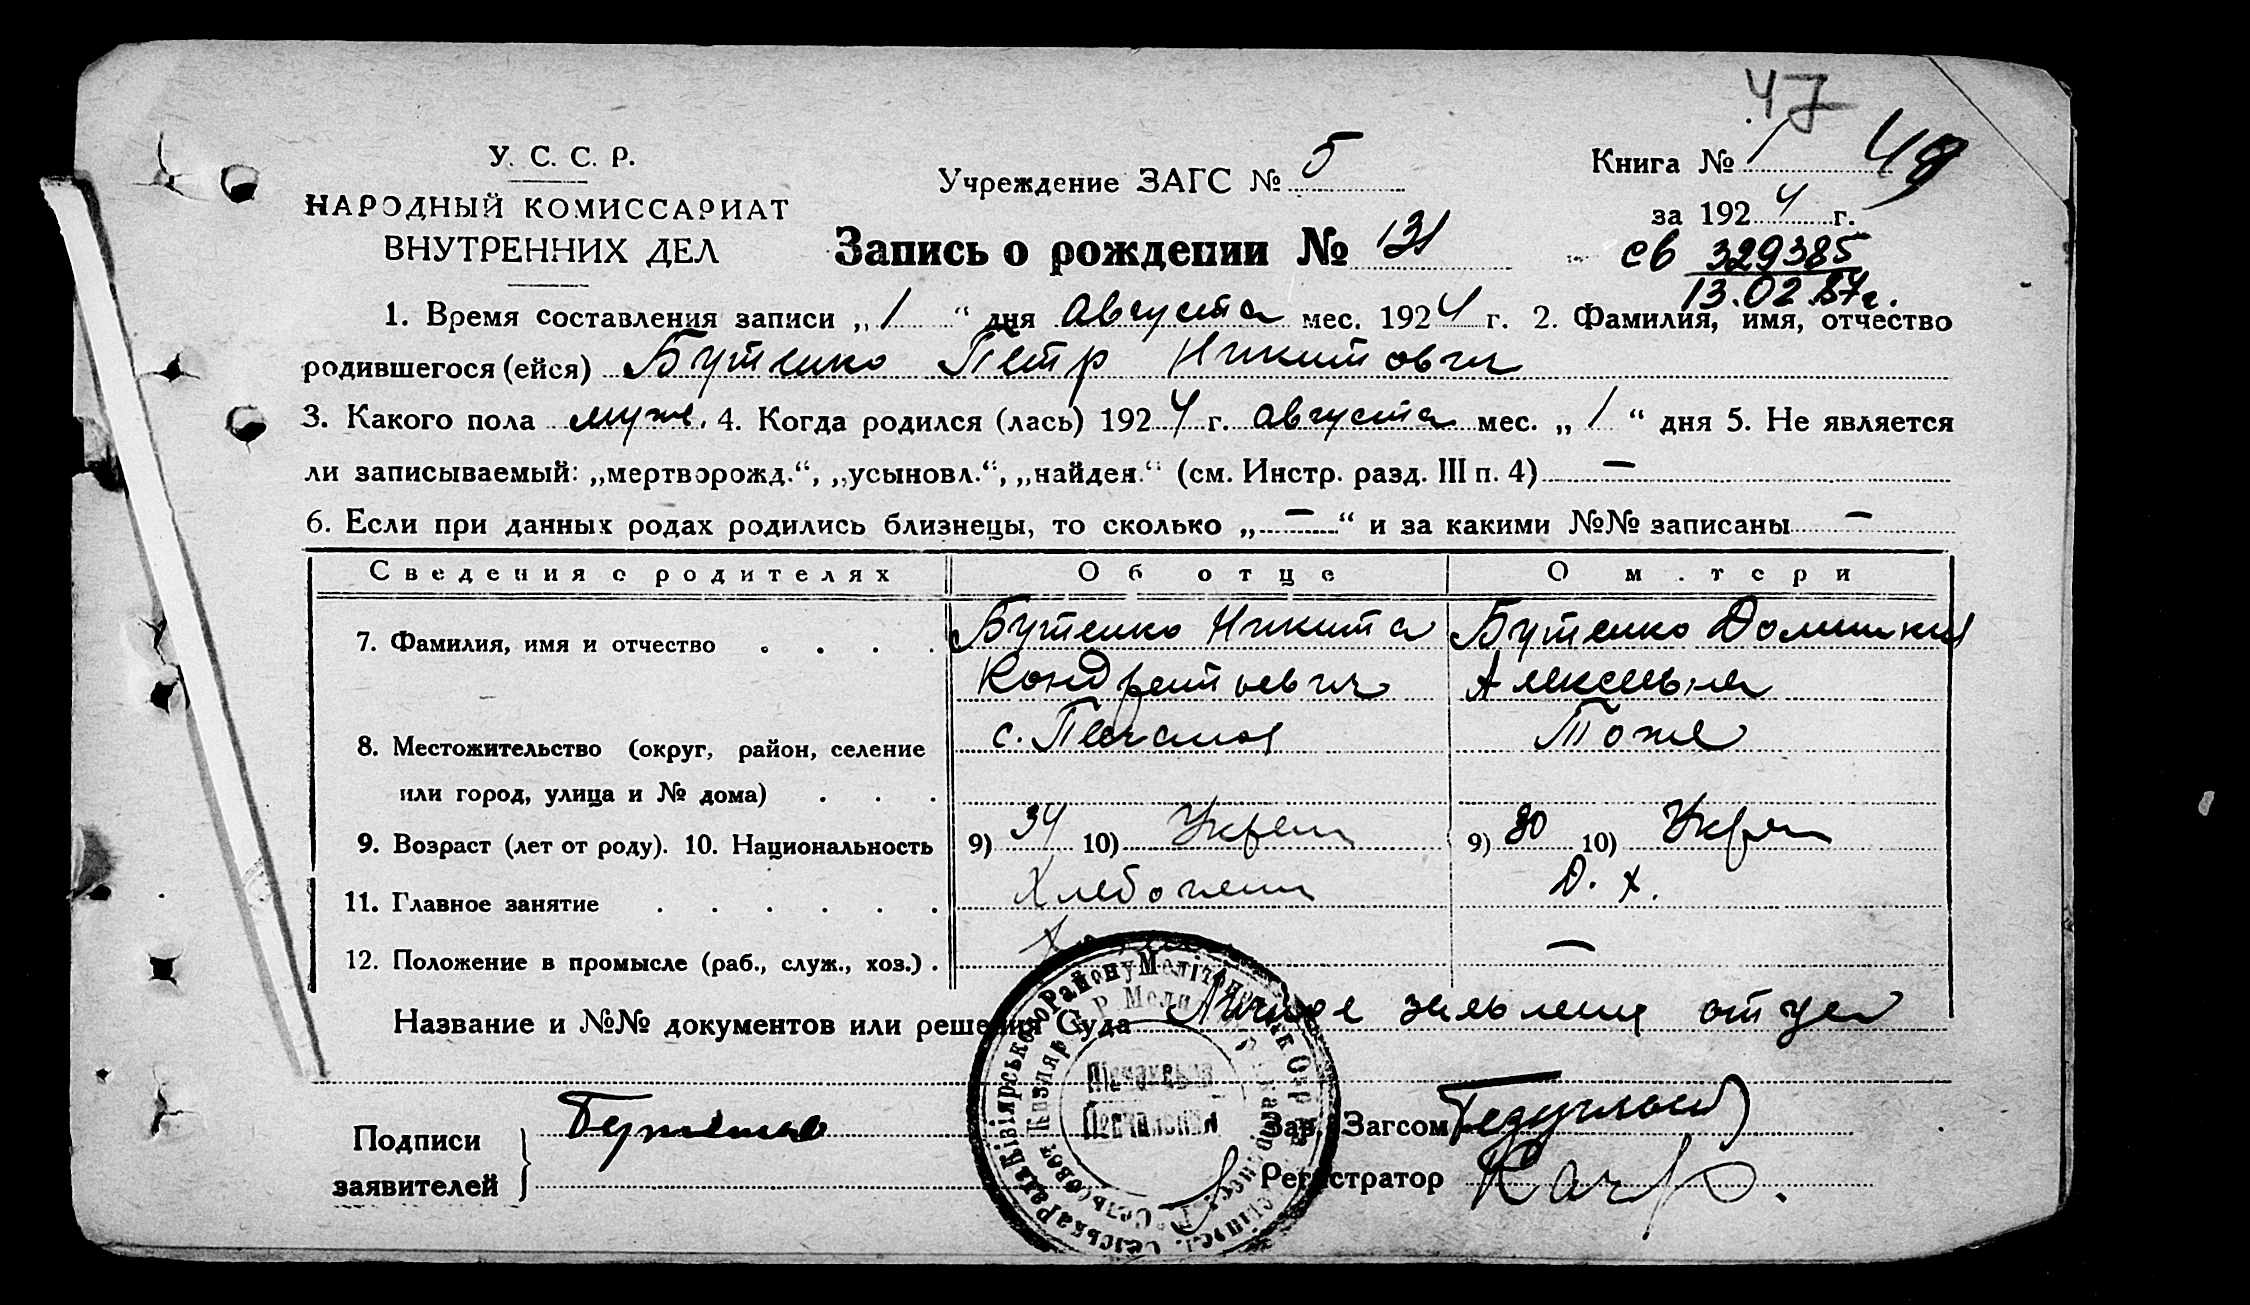 47
У. С. С. Р.
НАРОДНЫЙ КОМИССАРИАТ
ВНУТРЕННИХ ДЕЛ
Учреждение ЗАГС № 5
Книга № 1 48
за 1924 г.
Запись о рождении № 131
св 329385
13.02.87г.
1. Время составления записи „1“ дня Августа мес. 1924 г. 2. Фамилия, имя, отчество
родившегося (ейся) Бутенко Петр Никитович
3. Какого пола муж. 4. Когда родился (лась) 1924 г. Августа мес. „1“ дня 5. Не является
ли записываемый: „мертворожд.“, „усыновл.“, „найден.“ (см. Инстр. разд. III п. 4) —
6. Если при данных родах родились близнецы, то сколько „—“ и за какими №№ записаны —
Сведения о родителях Об отце О м.тери
7. Фамилия, имя и отчество Бутенко Никита Бутенко Домникия
Кондратьевич Алексеевна
8. Местожительство (округ, район, селение с. Песчаная Тоже
или город, улица и № дома)
9. Возраст (лет от роду). 10. Национальность 9) 34 10) Украин 9) 30 10) Украин
11. Главное занятие Хлебопаш Д. х.
12. Положение в промысле (раб., служ., хоз.) —
Название и №№ документов или решения Суда Личное заявление отца
Подписи
заявителей
Бутенко
Зав. Загсом
Регистратор